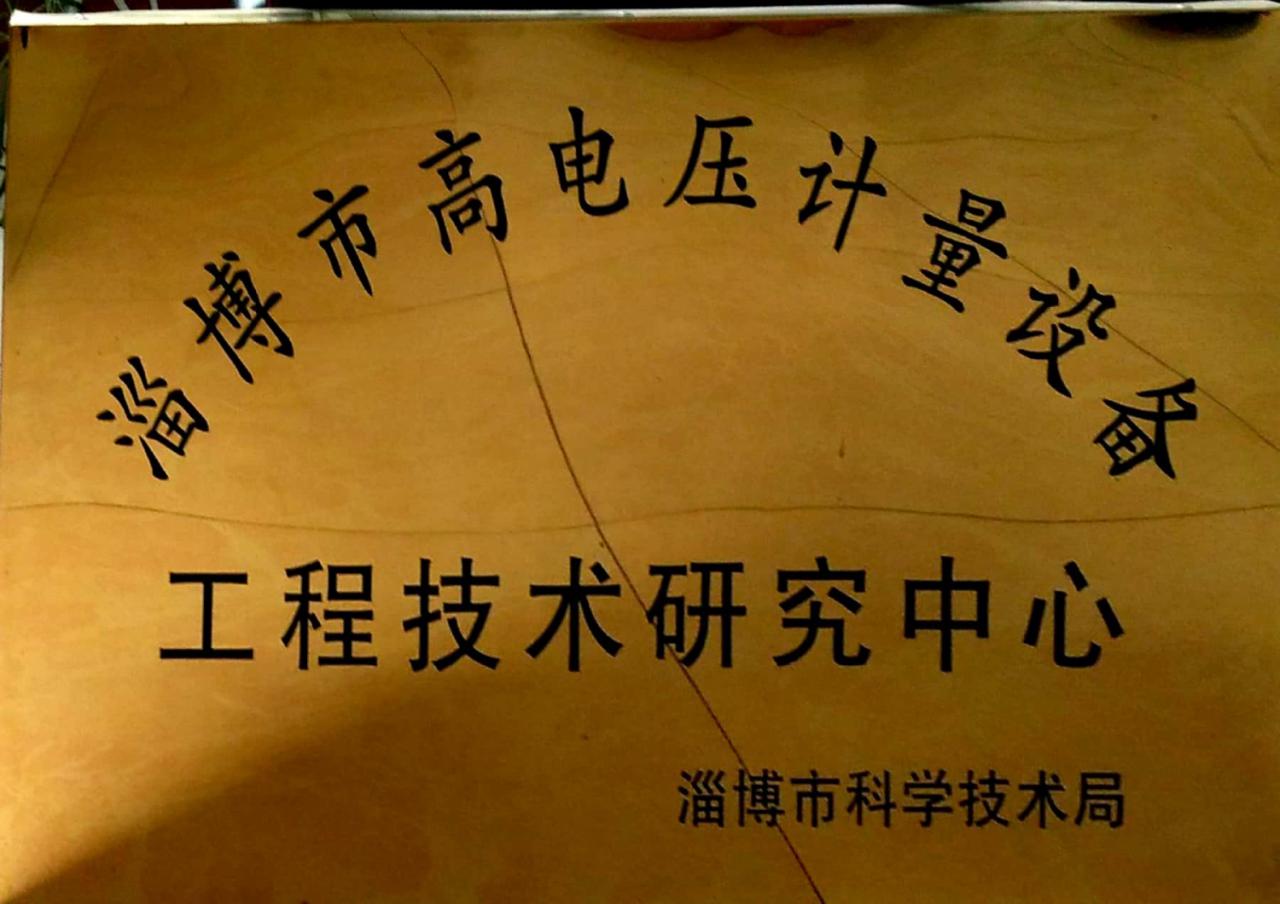 淄博市高电压计量设备
工程技术研究中心
淄博市科学技术局